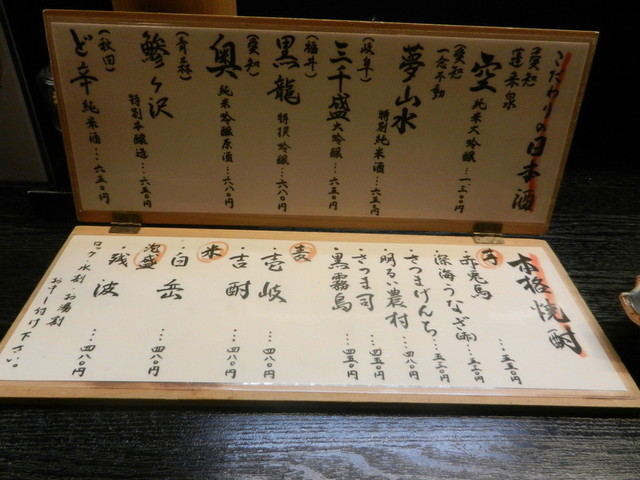 こだわりの日本酒
(愛知)
蓬莱泉
空 純米大吟醸…一三〇円
(愛知)
一念不動
夢山水 特別純米酒…六五〇円
(岐阜)
三千盛 大吟醸…六五〇円
(福井)
黒龍 特撰吟醸…六八〇円
(愛知)
奥 純米吟醸原酒…六八〇円
(青森)
鰺ヶ沢 特別本醸造…六五〇円
(秋田)
ど辛 純米酒…六五〇円
本格焼酎
芋
・赤兎馬…五五〇円
・深海うなぎ(雨)…五五〇円
・さつまげんち…五三〇円
・明るい農村…四八〇円
・さつま司…四五〇円
・黒霧島…四五〇円
麦
・壱岐…四八〇円
米
・吉酎…四八〇円
・白岳…四八〇円
泡盛
・残波…四八〇円
ロック・水割・お湯割
お申し付け下さい。